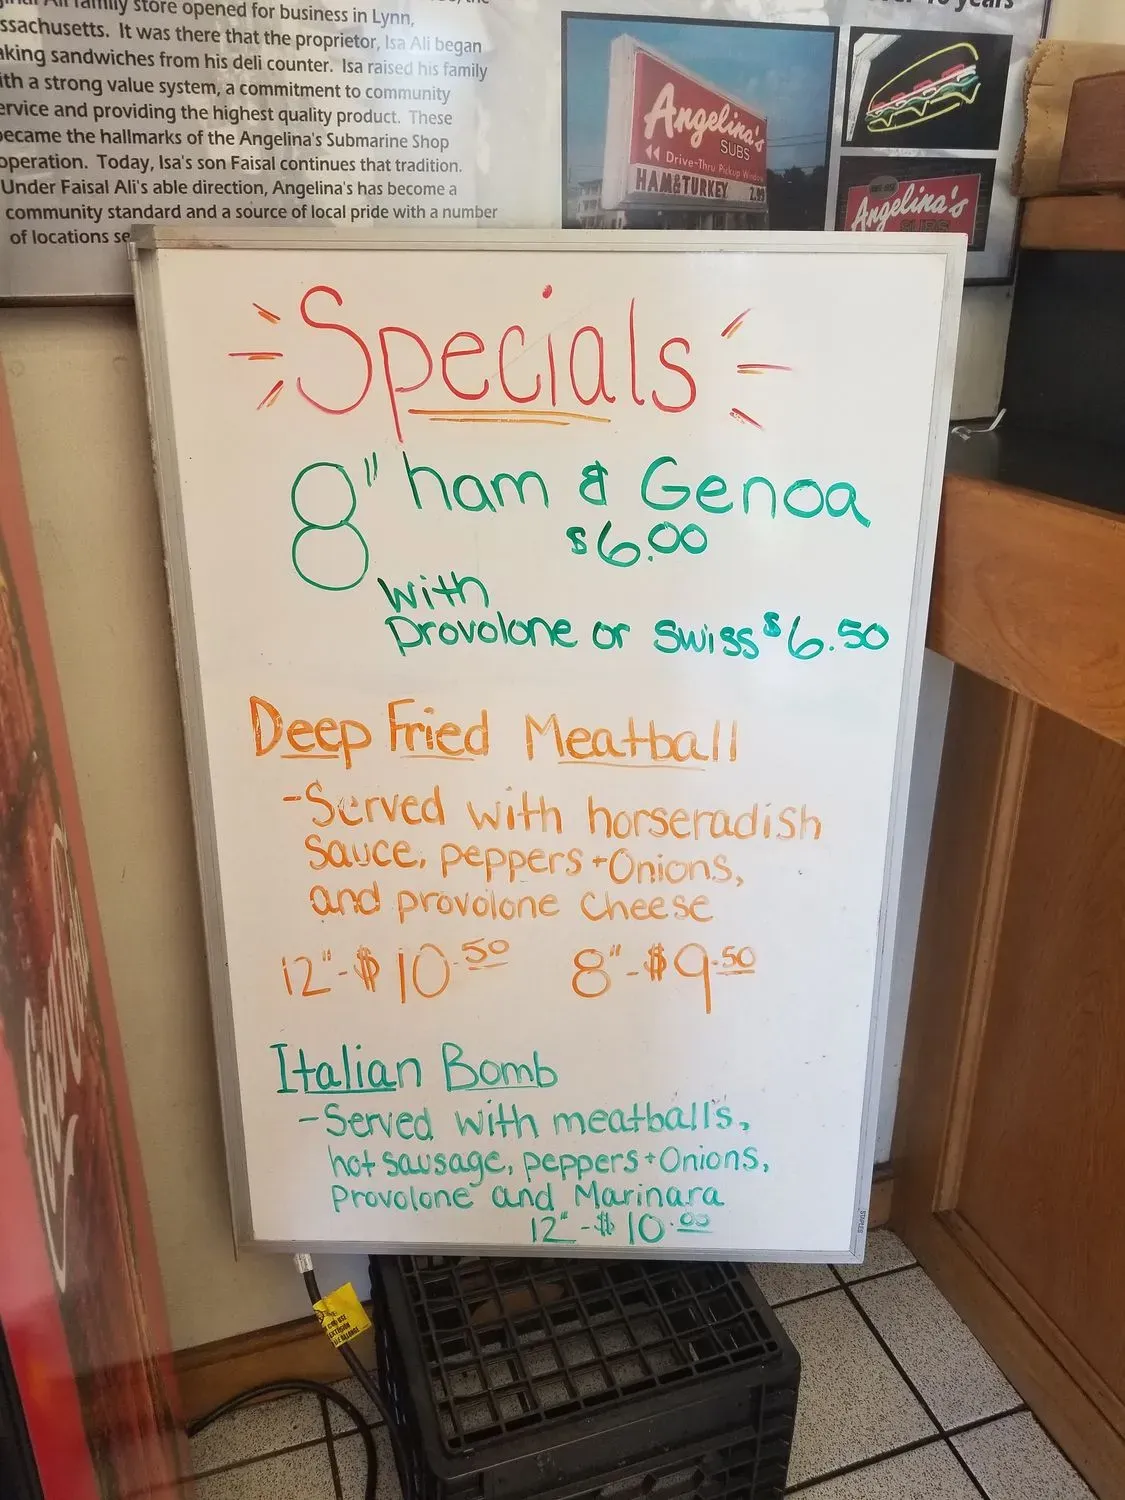 family store opened for business in Lynn,
ssachusetts. It was there that the proprietor, Isa Ali began
aking sandwiches from his deli counter. Isa raised his family
ith a strong value system, a commitment to community
ervice and providing the highest quality product. These
ecame the hallmarks of the Angelina's Submarine Shop
operation. Today, Isa's son Faisal continues that tradition.
Under Faisal Ali's able direction, Angelina's has become a
community standard and a source of local pride with a number
of locations se
years
Angelina's
SUBS
Drive-Thru Pickup Window
HAM&TURKEY 2.99
Angelina's
SUBS
Specials
8" ham & Genoa
$6.00
with
Provolone or Swiss $6.50
Deep Fried Meatball
-Served with horseradish
Sauce, peppers + Onions,
and provolone cheese
12"-$10.50 8"-$9.50
Italian Bomb
-Served with meatballs,
hot sausage, peppers + Onions,
Provolone and Marinara
12"-$10.00
STAPLES